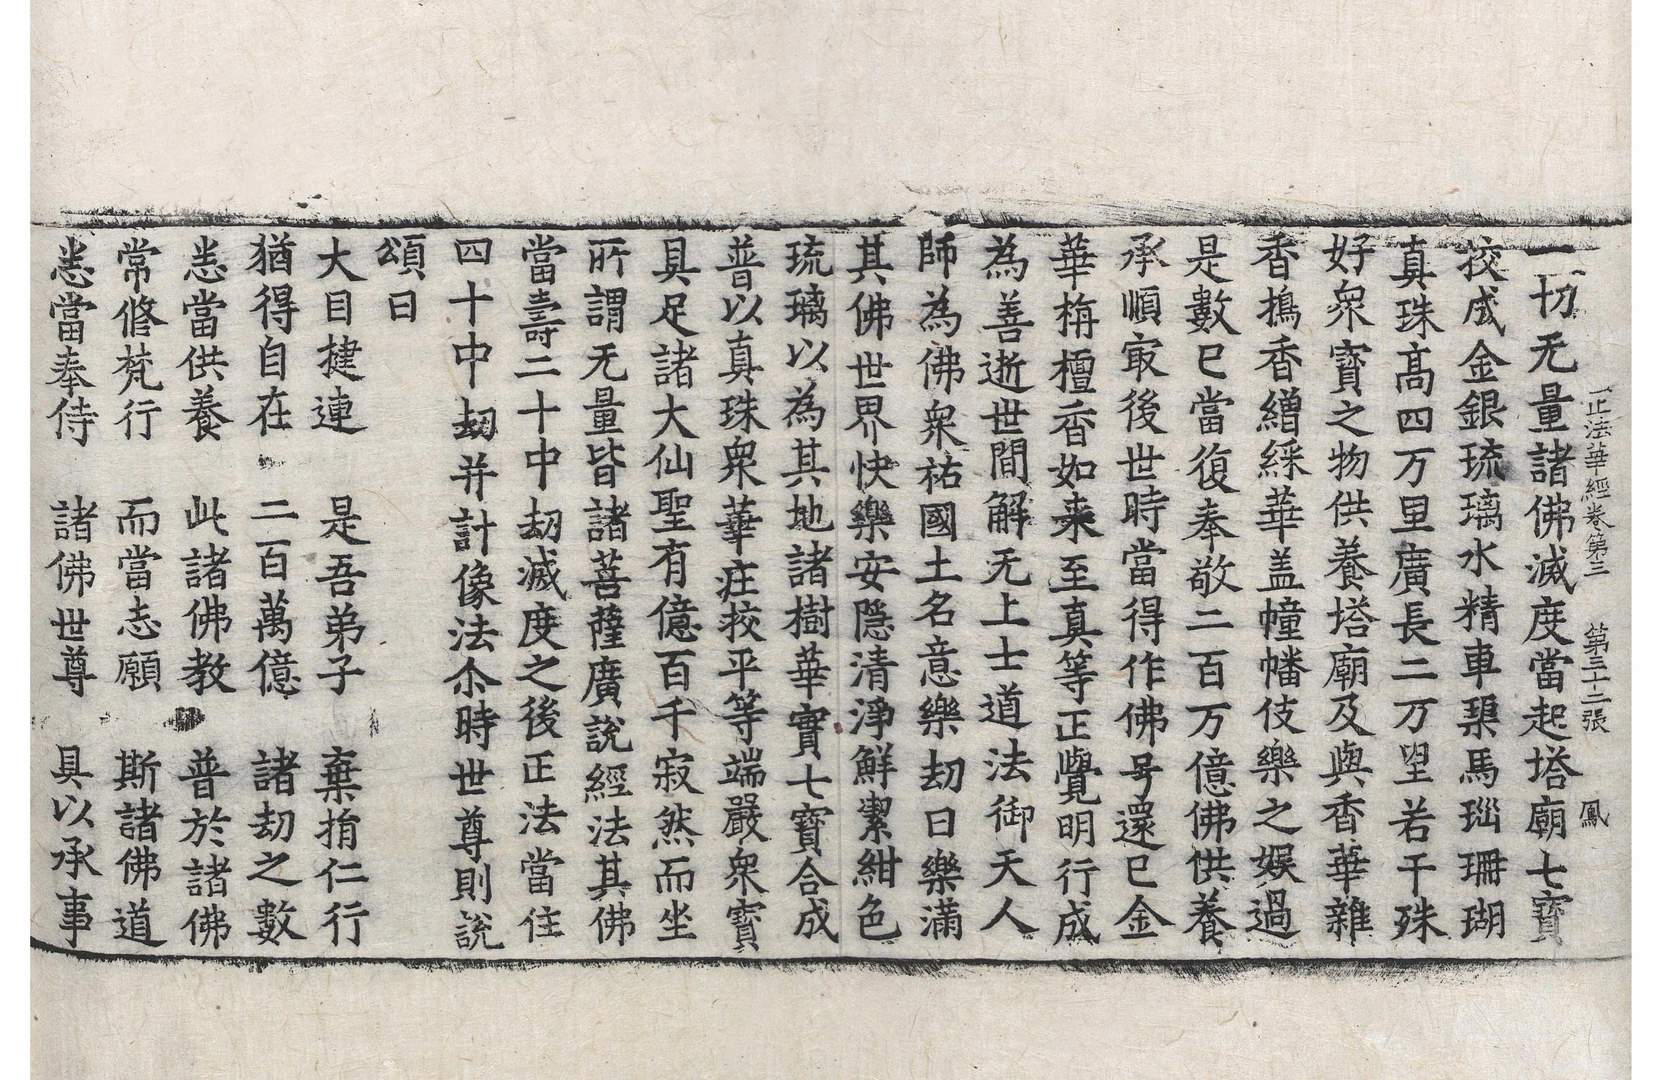 正法華經卷第三 第三十二張 鳳
一切无量諸佛滅度當起塔廟七寶
挍成金銀琉璃水精車𤦲馬瑙珊瑚
真珠高四万里廣長二万里若干殊
好衆寶之物供養塔廟及與香華雜
香擣香繒綵華盖幢幡伎樂之娛過
是數已當復奉敬二百万億佛供養
承順㝡後世時當得作佛号還已金
華栴檀香如来至真等正覺明行成
為善逝世間解无上士道法御天人
師為佛衆祐國土名意樂劫曰樂滿
其佛世界快樂安隱清淨鮮潔紺色
琉璃以為其地諸樹華實七寶合成
普以真珠衆華㽵挍平等端嚴衆寶
具足諸大仙聖有億百千寂然而坐
所謂无量皆諸菩薩廣說經法其佛
當壽二十中劫滅度之後正法當住
四十中劫并計像法尒時世尊則說
頌曰
大目揵連 是吾弟子 棄捐仁行
猶得自在 二百萬億 諸劫之數
悉當供養 此諸佛教 普於諸佛
常修梵行 而當志願 斯諸佛道
悉當奉侍 諸佛世尊 具以承事